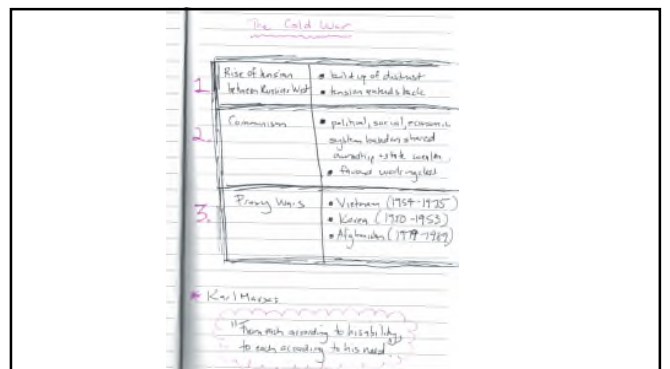 The Cold War
1.
Rise of tension
between Russia + West
• build up of distrust
• tension extends back
2.
Communism
• political, social, economic
system based on shared
ownership + state wealth
• favours working class
3.
Proxy Wars
• Vietnam (1954-1975)
• Korea (1950-1953)
• Afghanistan (1979-1989)
* Karl Marx
"From each according to his ability,
to each according to his need"